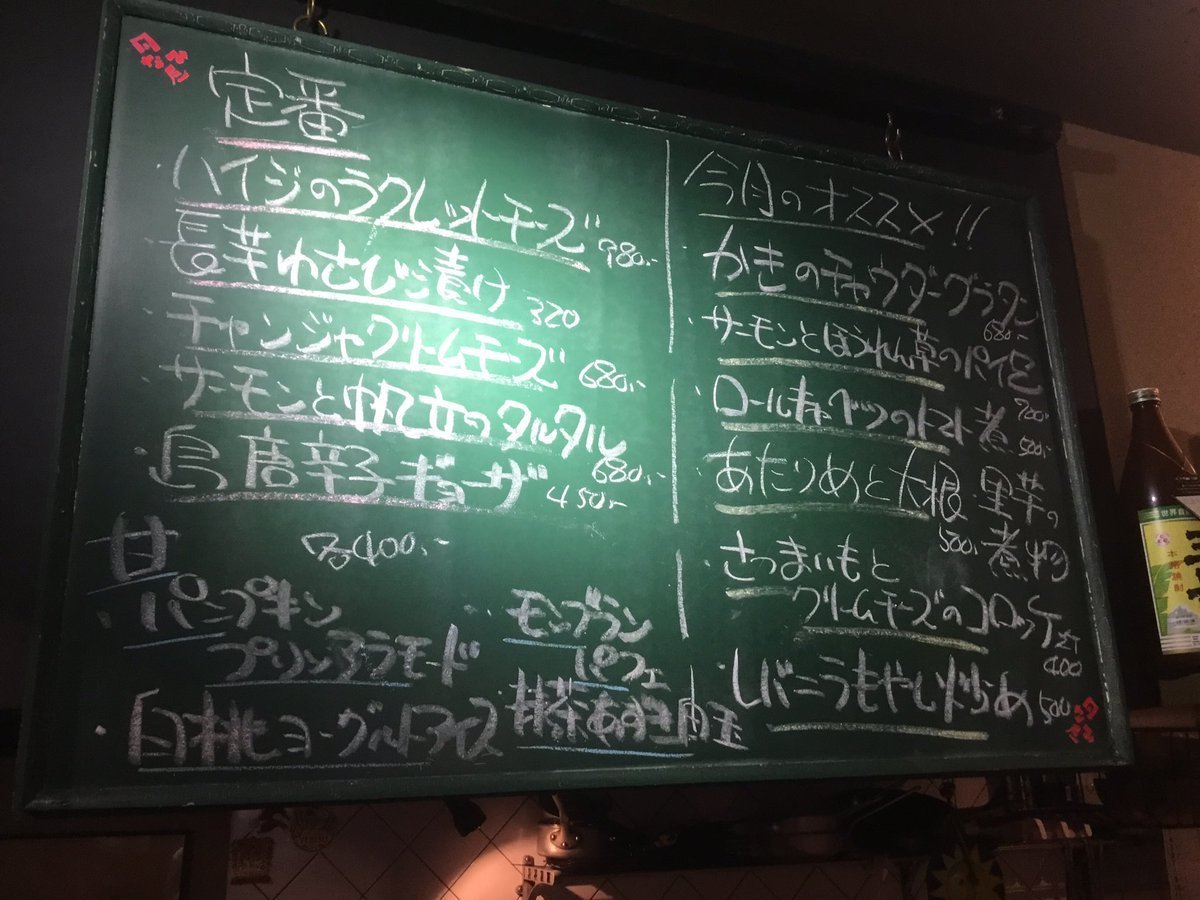 定番
・ハイジのラクレットチーズ 980.-
・長芋わさび漬け 320
・チャンジャクリームチーズ 680.-
・サーモンと帆立のタルタル 680.-
・鳥唐辛子ギョーザ 450.-
甘 各400.-
・パンプキン
プリンアラモード
・白桃ヨーグルトアイス
・モンブラン
パフェ
抹茶あずき白玉
今月のオススメ!!
・かきのチャウダーグラタン 680.-
・サーモンとほうれん草のパイ包 700.-
・ロールキャベツのトマト煮 500.-
・あたりめと大根・里芋の
煮物 500.-
・さつまいもと
クリームチーズのコロッケ 400
・レバニラもやし炒め 500
世界自
本格焼酎